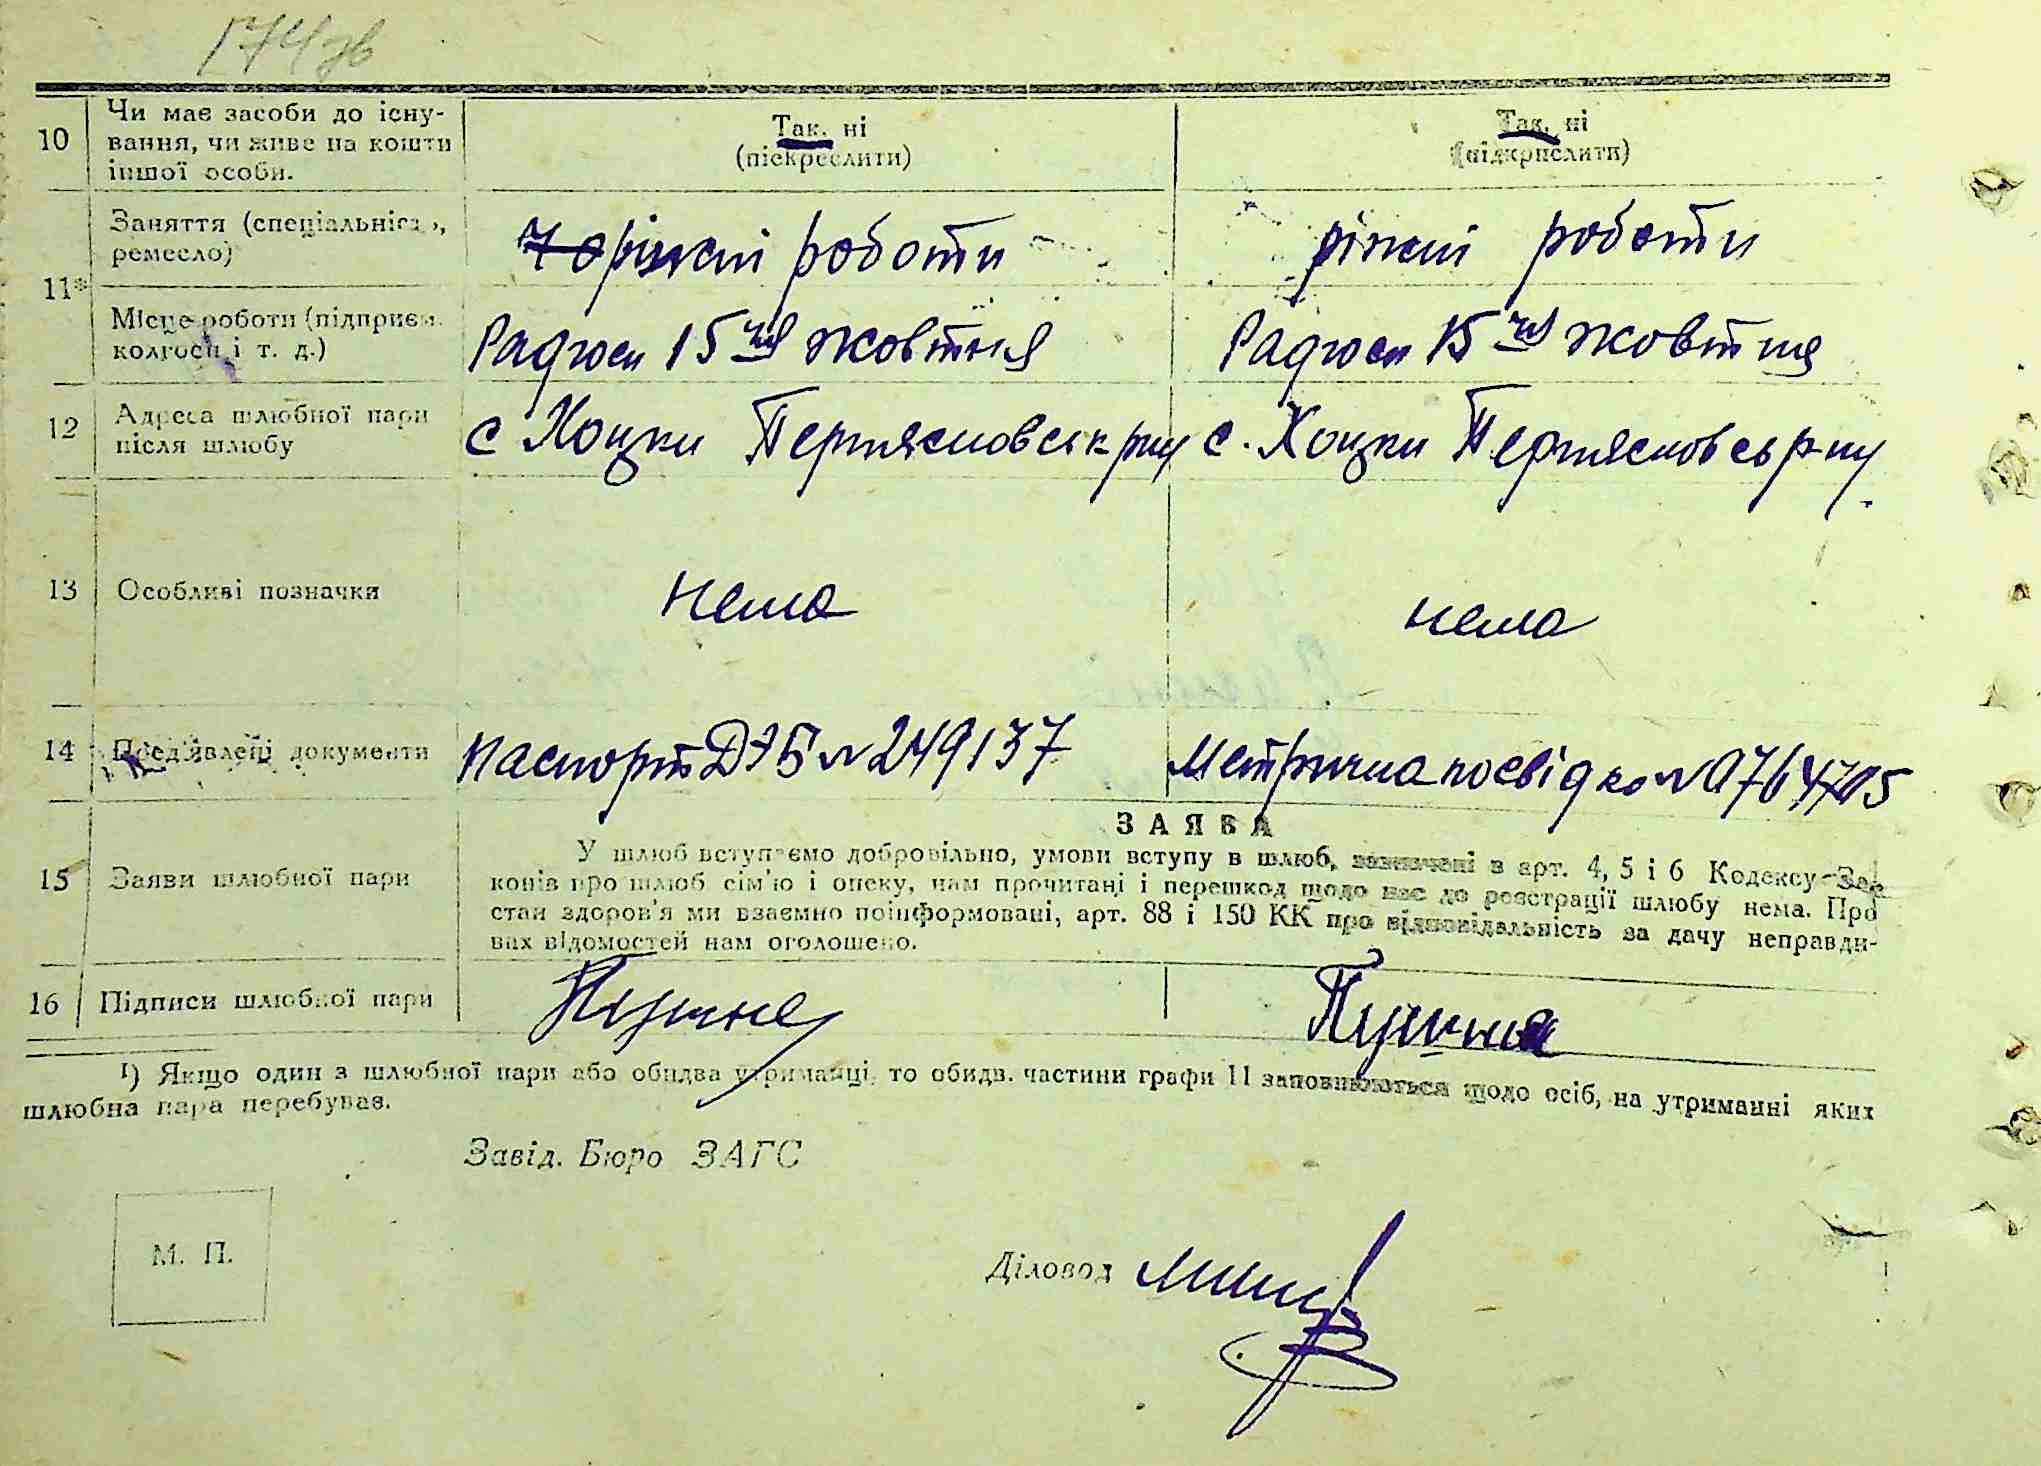 174 зв
10 Чи має засоби до існу-
вання, чи живе на кошти
іншої особи.
Так, ні
(піскреслити)
Так, ні
(підкрислити)
11*
Заняття (спеціальність,
ремесло)
ріжні роботи
ріжні роботи
Місце роботи (підприєм.
колгосп і т. д.)
Радгосп 15 чя жовтня
Радгосп 15 чя жовтня
12 Адреса шлюбної пари
після шлюбу
с Хоцки
с. Хоцки
13 Особливі позначки
нема
нема
14 Пред'явлені документи
Паспорт № 249137
Метрична посвідка №
ЗАЯВА
15 Заяви шлюбної пари
У шлюб вступаємо добровільно, умови вступу в шлюб, зазначені в арт. 4, 5 і 6 Кодексу За-
конів про шлюб сім'ю і опеку, нам прочитані і перешкод щодо нас до реєстрації шлюбу нема. Про
стан здоров'я ми взаємно поінформовані, арт. 88 і 150 КК про відповідальність за дачу неправди-
вих відомостей нам оголошено.
16 Підписи шлюбної пари
1) Якщо один з шлюбної пари або обидва утриманці, то обидв. частини графи 11 заповнюються щодо осіб, на утриманні яких
шлюбна пара перебуває.
Завід. Бюро ЗАГС
М. П.
Діловод